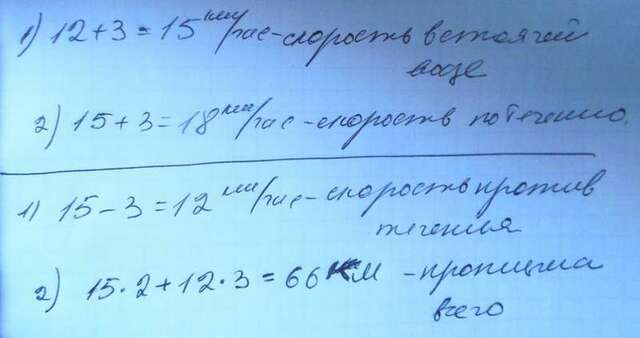 1) 12+3=15 км/час-скорость в стоячей
воде
2) 15+3=18 км/час-скорость по течению.
1) 15-3=12 км/час-скорость против
теченья
2) 15·2+12·3=66 км -проплыла
всего